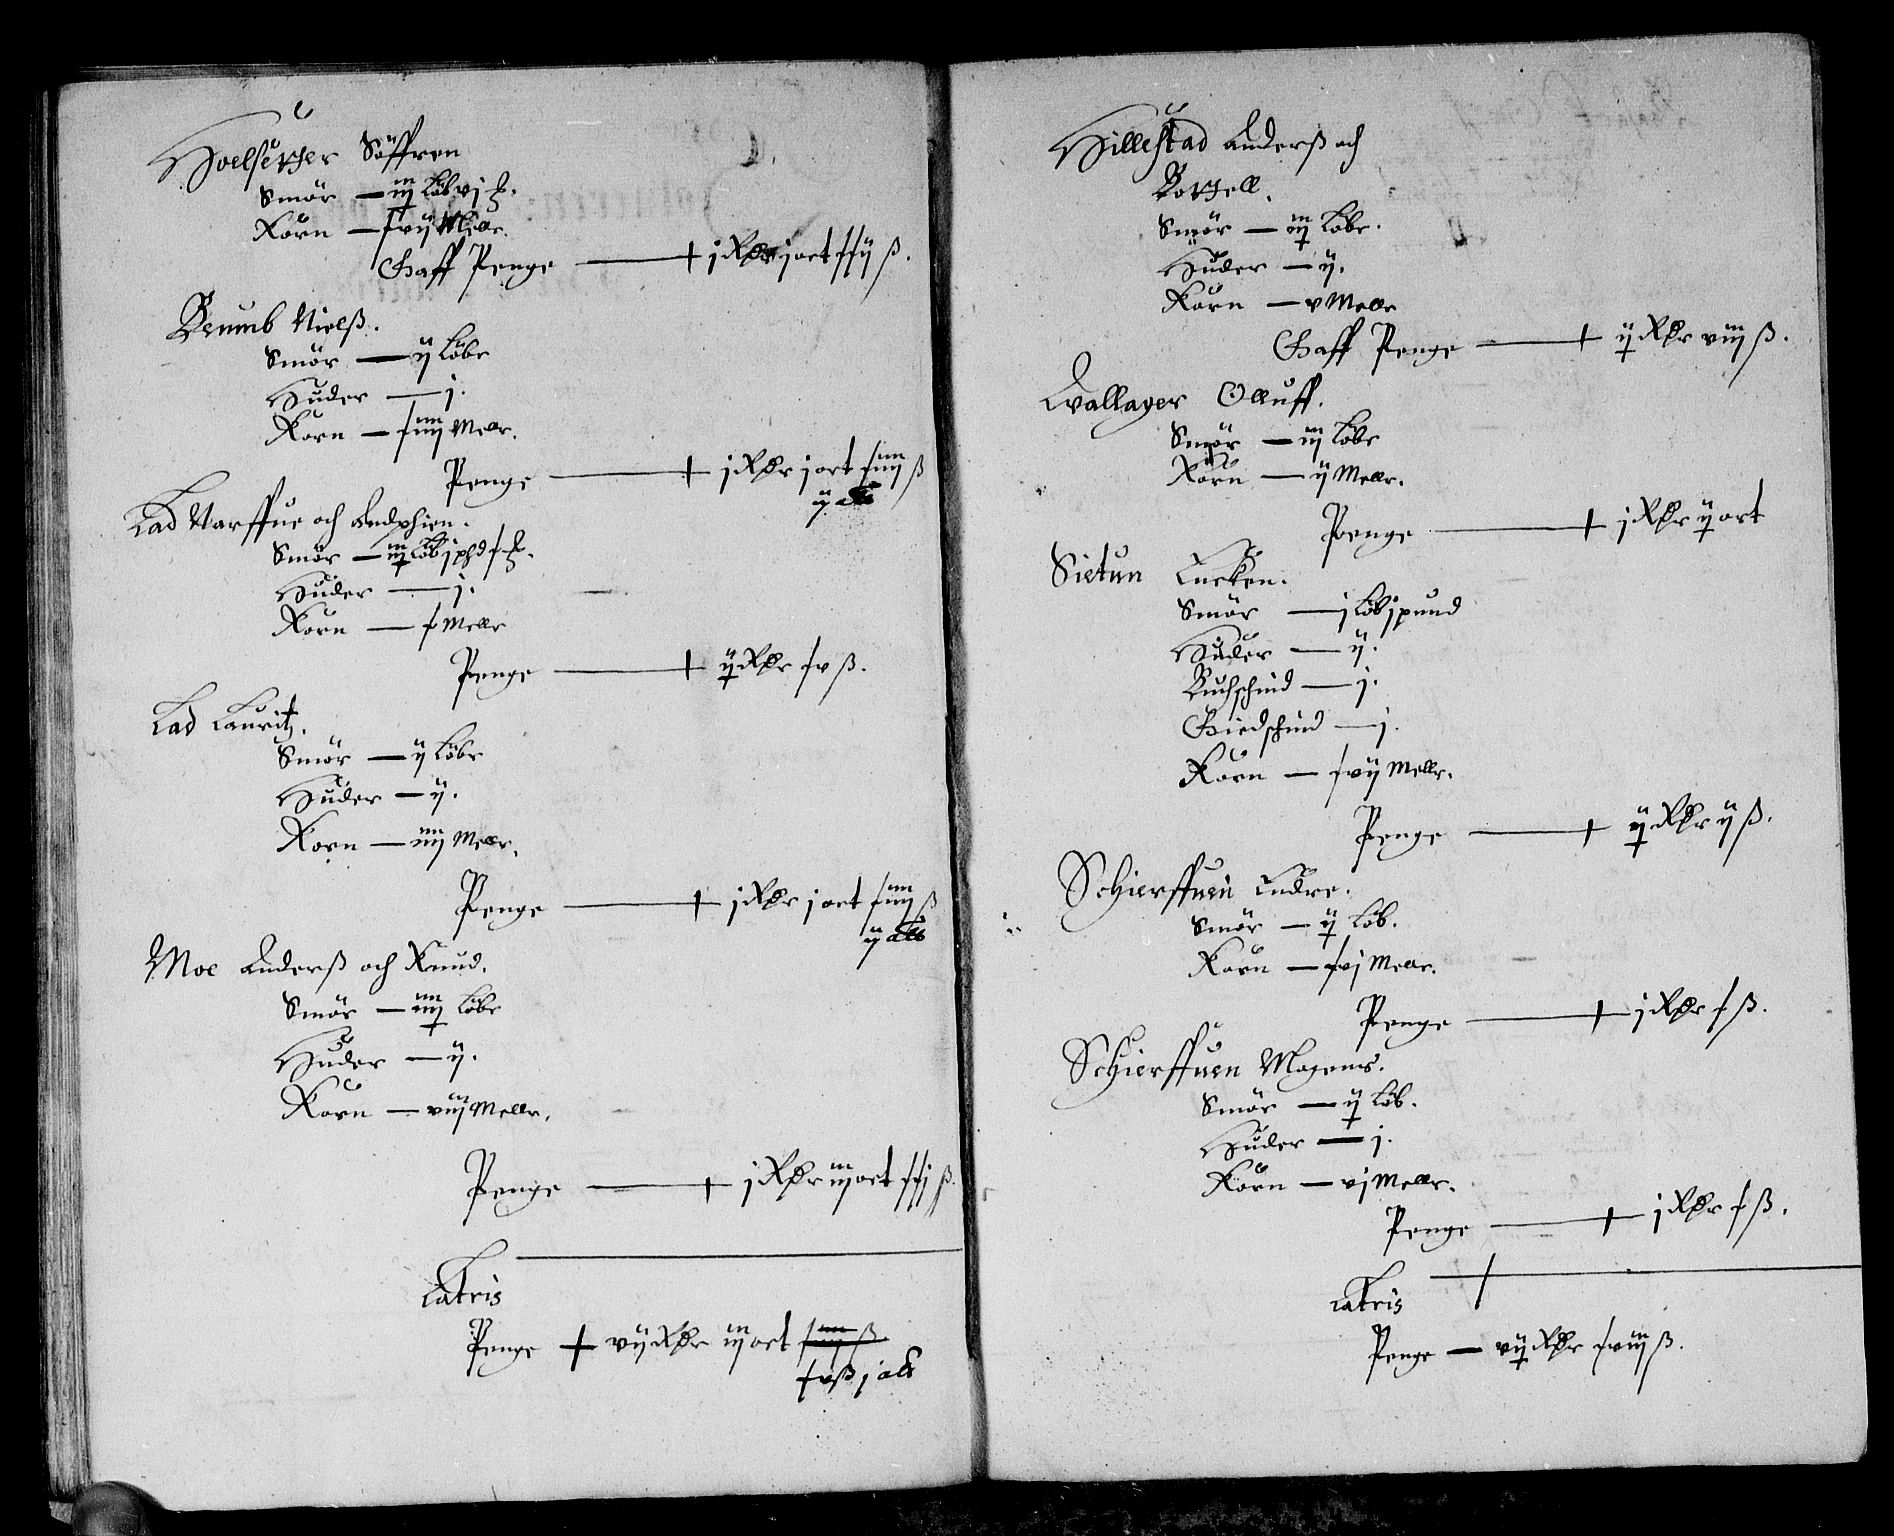 Hoelsetter Söffren
Smör — iij Løb vj ℔.
Korn — xvij Meller.
Gaff Penge — j Rdr j ort xxij ß.
Brumb Nielß.
Smör — ij Løbr
Huder — j.
Korn — xiiij Mellr.
Penge — j Rdr j ort xiiij ß
ij alb
Lad Narffue och Endphien.
Smör — iij Løb j pd x ℔.
Huder — j.
Korn — x Mellr
Penge — ij Rdr xv ß.
Lad Lauritz.
Smör — ij Løbr
Huder — ij.
Korn — iiij Mellr.
Penge — j Rdr j ort xiiij ß
ij alb
Moe Anderß och Knud.
Smör — iiij Løbr
Huder — ij.
Korn — viij Mellr.
Penge — j Rdr iij ort xxj ß.
Latris
Penge — vij Rdr iij ort xiiij ß
xv ß j alb
Hillestad Anderß och
Bottell.
Smör — iij Løbr.
Huder — ij.
Korn — v Mellr
Gaff Penge — ij Rdr viij ß.
Qvallager Olluff.
Smör — iij Løbr
Korn — ij Mellr.
Penge — j Rdr ij ort
Sietun Encken.
Smör — j Løb j pund
Huder — ij.
Buchschind — j.
Giedschind — j.
Korn — xvij Mellr.
Penge — ij Rdr ij ß.
Schierffuen Endre.
Smör — ij Løb.
Korn — xvj Mellr.
Penge — j Rdr x ß.
Schierffuen Mogens.
Smör — ij Løb.
Huder — j.
Korn — vj Mellr.
Penge — j Rdr x ß.
Latris
Penge — vij Rdr xviij ß.